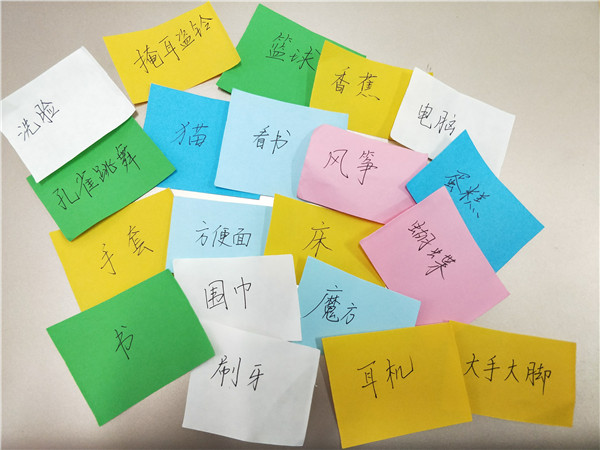 掩耳盗铃
篮球
香蕉
电脑
洗脸
猫
看书
风筝
蛋糕
孔雀跳舞
手套
方便面
床
蝴蝶
书
围巾
魔方
刷牙
耳机
大手大脚